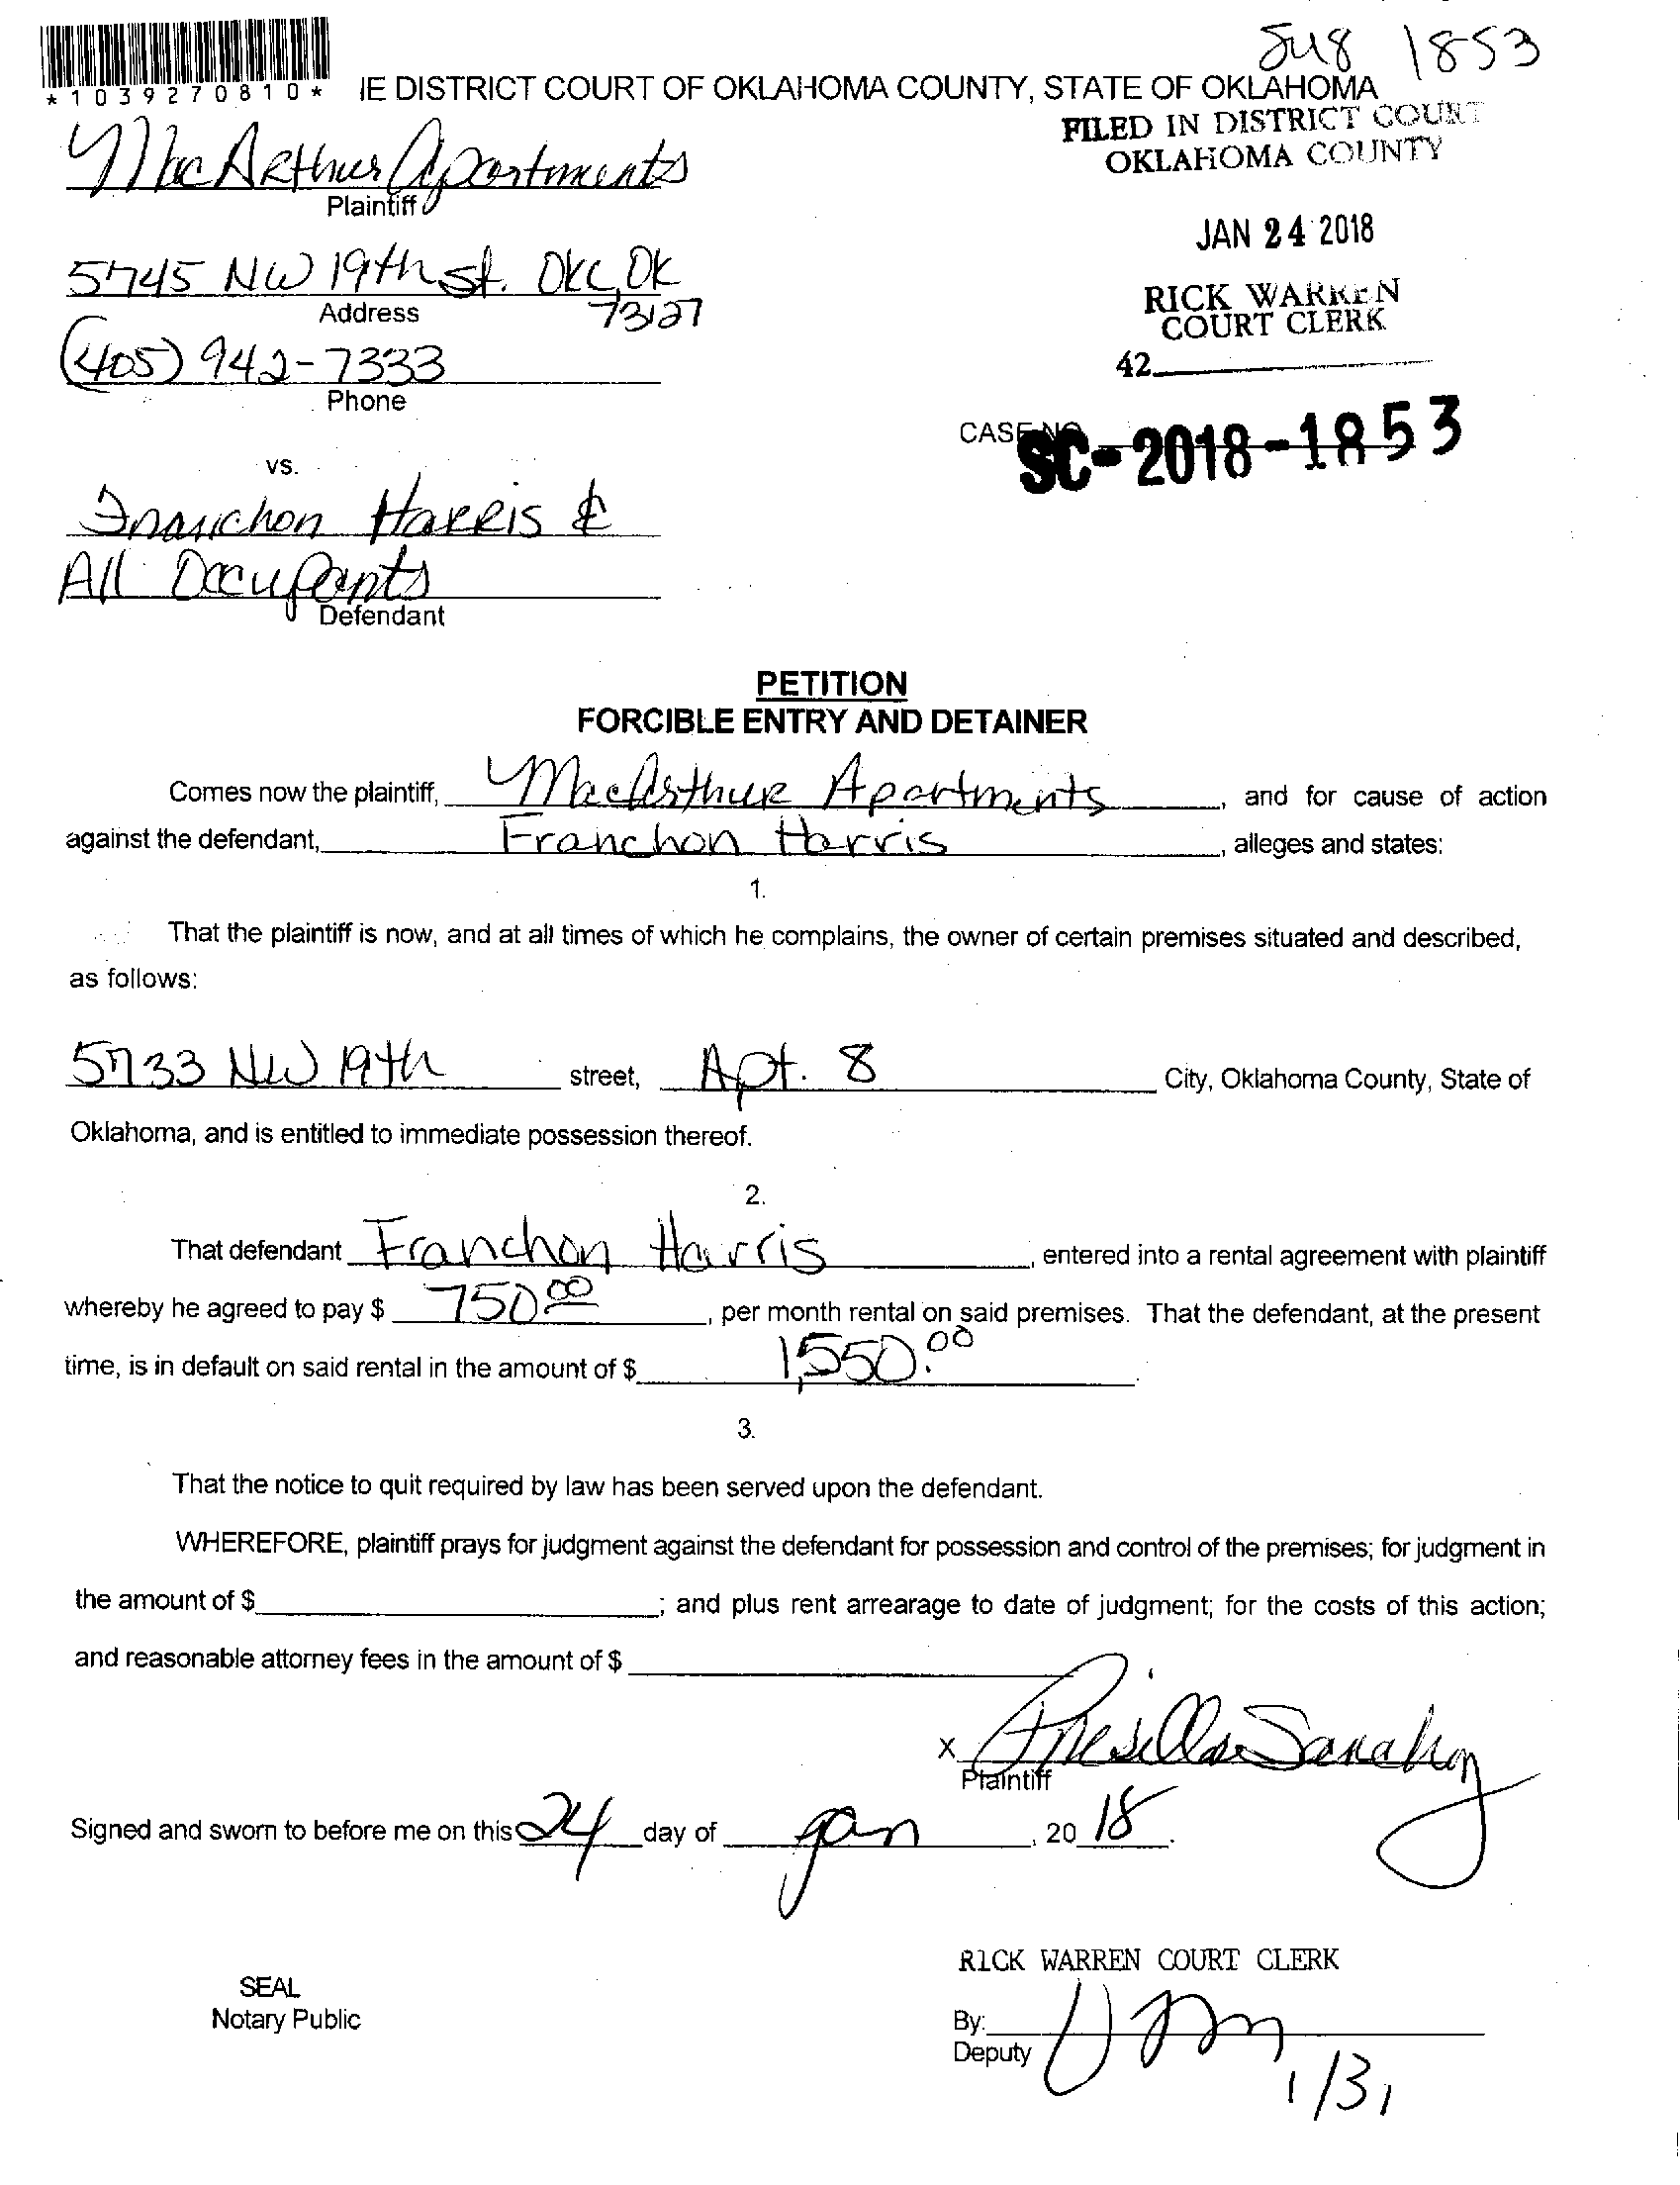 Su8 1853
*1039270810* IE DISTRICT COURT OF OKLAHOMA COUNTY, STATE OF OKLAHOMA
FILED IN DISTRICT COURT
OKLAHOMA COUNTY
MacArthur Apartments
Plaintiff
JAN 24 2018
5745 NW 19th st. OKC, OK
73127
Address
RICK WARREN
COURT CLERK
(405) 942-7333
Phone
42
CASE NO. SC-2018-1853
vs.
Franchon Harris &
All Occupants
Defendant
PETITION
FORCIBLE ENTRY AND DETAINER
Comes now the plaintiff, MacArthur Apartments, and for cause of action
against the defendant, Franchon Harris, alleges and states:
1.
That the plaintiff is now, and at all times of which he complains, the owner of certain premises situated and described,
as follows:
5733 NW 19th street, Apt. 8 City, Oklahoma County, State of
Oklahoma, and is entitled to immediate possession thereof.
2.
That defendant Franchon Harris, entered into a rental agreement with plaintiff
whereby he agreed to pay $ 750.00, per month rental on said premises. That the defendant, at the present
time, is in default on said rental in the amount of $ 1,550.00
3.
That the notice to quit required by law has been served upon the defendant.
WHEREFORE, plaintiff prays for judgment against the defendant for possession and control of the premises; for judgment in
the amount of $ ; and plus rent arrearage to date of judgment; for the costs of this action;
and reasonable attorney fees in the amount of $
x Presilla Sanchez
Plaintiff
Signed and sworn to before me on this 24 day of Jan, 20 18.
RICK WARREN COURT CLERK
SEAL
Notary Public
By:
Deputy
1/31